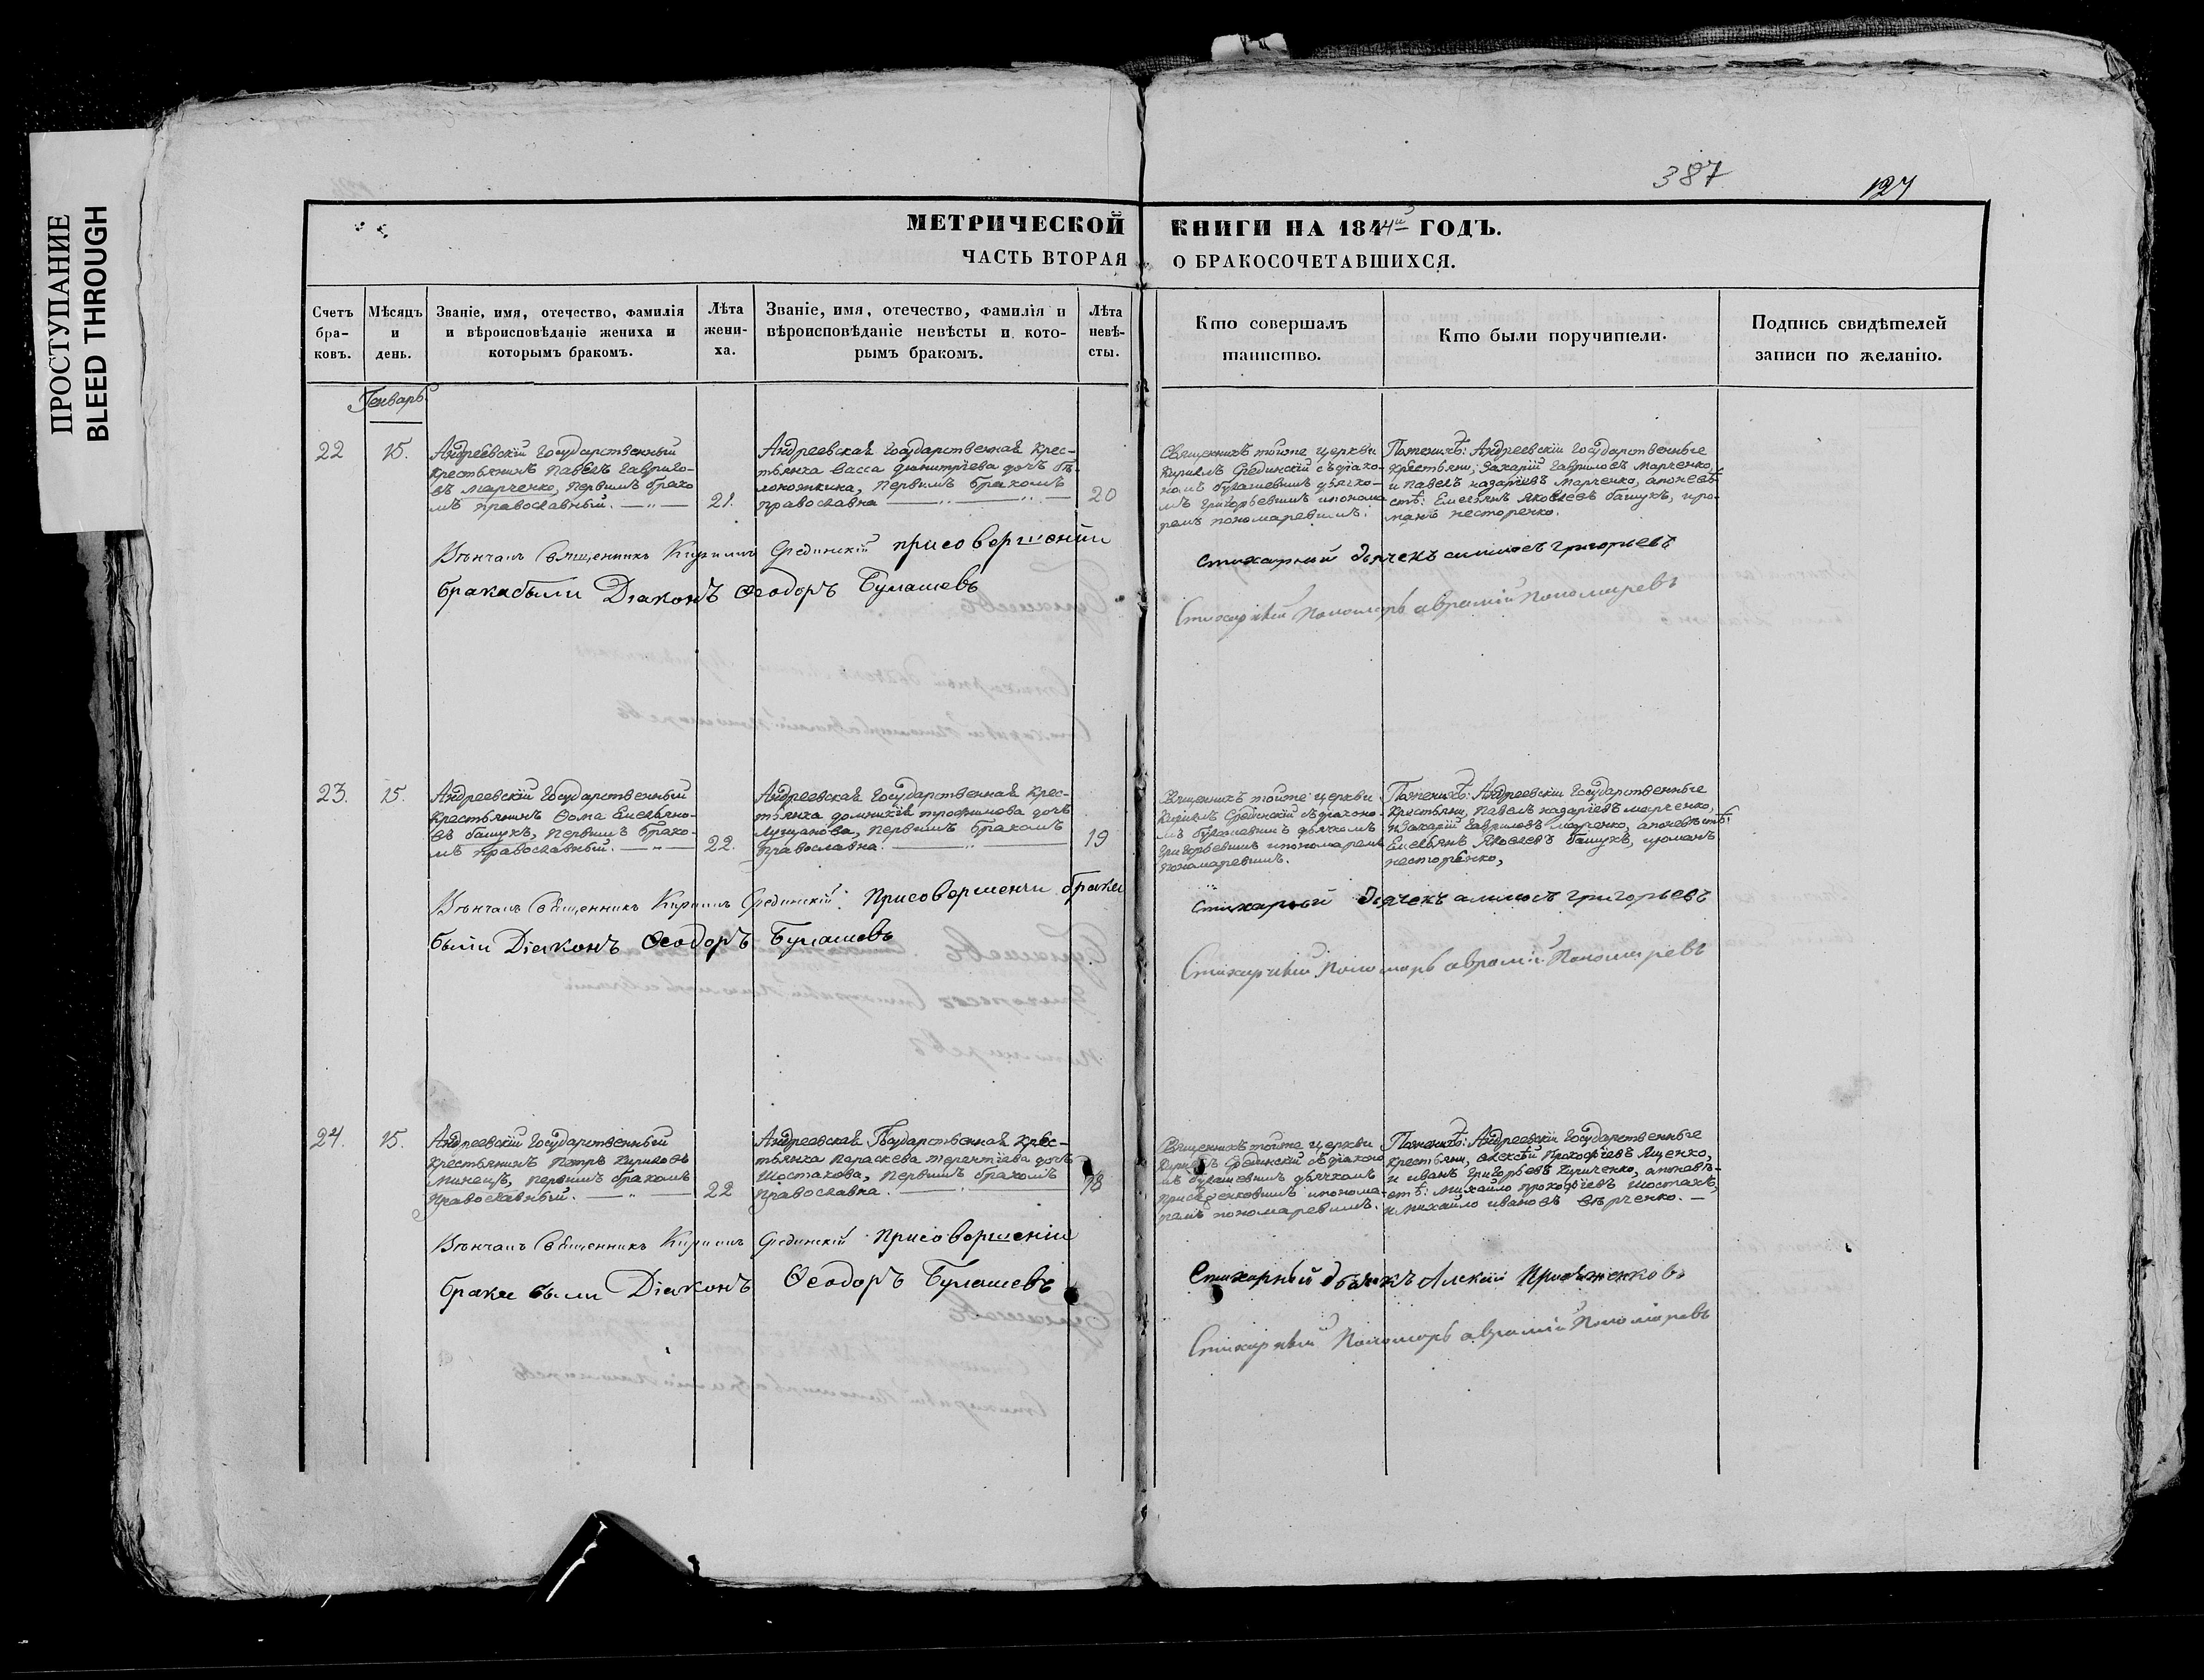 ПРОСТУПАНИЕ
BLEED THROUGH
387
127
МЕТРИЧЕСКОЙ КНИГИ НА 1844й ГОДЪ.
ЧАСТЬ ВТОРАЯ О БРАКОСОЧЕТАВШИХСЯ.
Счетъ бра-ковъ.
Мѣсяцъ и день.
Званіе, имя, отечество, фамилія и вѣроисповѣданіе жениха и которымъ бракомъ.
Лѣта жени-ха.
Званіе, имя, отечество, фамилія и вѣроисповѣданіе невѣсты и кото-рымъ бракомъ.
Лѣта невѣ-сты.
Кто совершалъ таинство.
Кто были поручители.
Подпись свидѣтелей записи по желанію.
Генварь
22
15.
Андреевскій Государственный
крестьянинъ Павелъ Гаврило-
въ Марченко, первымъ брако
мъ православный.
21.
Андреевская Государственная крес-
тьянка Васса Димитріева дочь
первымъ бракомъ
православна
20
Священникъ тойже церкви
Кириллъ Срединскій съ діако-
номъ Булашевымъ дьячко-
мъ Григорьевымъ ипонома
ремъ пономаревымъ.
Поженихѣ: Андреевскіи Государственные
крестьяни, Захарій Гавриловъ Марченко,
и Павелъ Назаріевъ Марченко, апоневѣ-
стѣ: Емельянъ Яковлевъ Башукъ, иро-
манъ нестеренко.
Вѣнчалъ Священникъ Кириллъ Срединскій присовершеніи
брака были Діаконъ Ѳеодоръ Булашевъ
Стихарный дьячекъ Григорьевъ
Стихарный Пономарь аврамій Пономаревъ
23.
15.
Андреевскій Государственный
крестьянинъ Ѳома Емельяно-
въ башукъ, первымъ брако-
мъ православный.
22.
Андреевская Государственная крес-
тьянка домникія трофимова дочь
первымъ бракомъ
православна.
19
Священникъ тойже церкви
Кириллъ Срединскій съ діаконо-
мъ булашевымъ дьячкомъ
григорьевымъ ипономаремъ
пономаревымъ.
Поженихѣ: Андреевскіи Государственные
крестьяни, Павелъ назаріевъ марченко,
изахарій Гавриловъ марченко, апоневѣстѣ:
Емельянъ Яковлевъ башукъ, ироманъ
нестеренко,
Вѣнчалъ Священникъ Кириллъ Срединскій. Присовершеніи брака
были Діаконъ Ѳеодоръ Булашевъ
Стихарный дьячекъ Григорьевъ
Стихарный Пономарь аврамій Пономаревъ
24.
15.
Андреевскій Государственный
крестьянинъ Петръ Кириловъ
Минецъ, первымъ бракомъ
православный.
22
Андреевская Государственная крес-
тьянка Параскева терентіева дочь
Шостакова, первымъ бракомъ
православна.
18
Священникъ тойже церкви
Кириллъ Срединскій съ діаконо
мъ булашевымъ дьячкомъ
ипонома-
ремъ пономаревымъ.
Поженихѣ: Андреевскіи Государственные
крестьяни, алексѣй Прокофіевъ Яценко,
и иванъ григорьевъ Кириченко, апоневѣ-
стѣ: михайло прокофіевъ шостакъ,
и михайло ивановъ
Вѣнчалъ Священникъ Кириллъ Срединскій Присовершеніи
брака были Діаконъ Ѳеодоръ Булашевъ
Стихарный
Стихарный Пономарь аврамій Пономаревъ